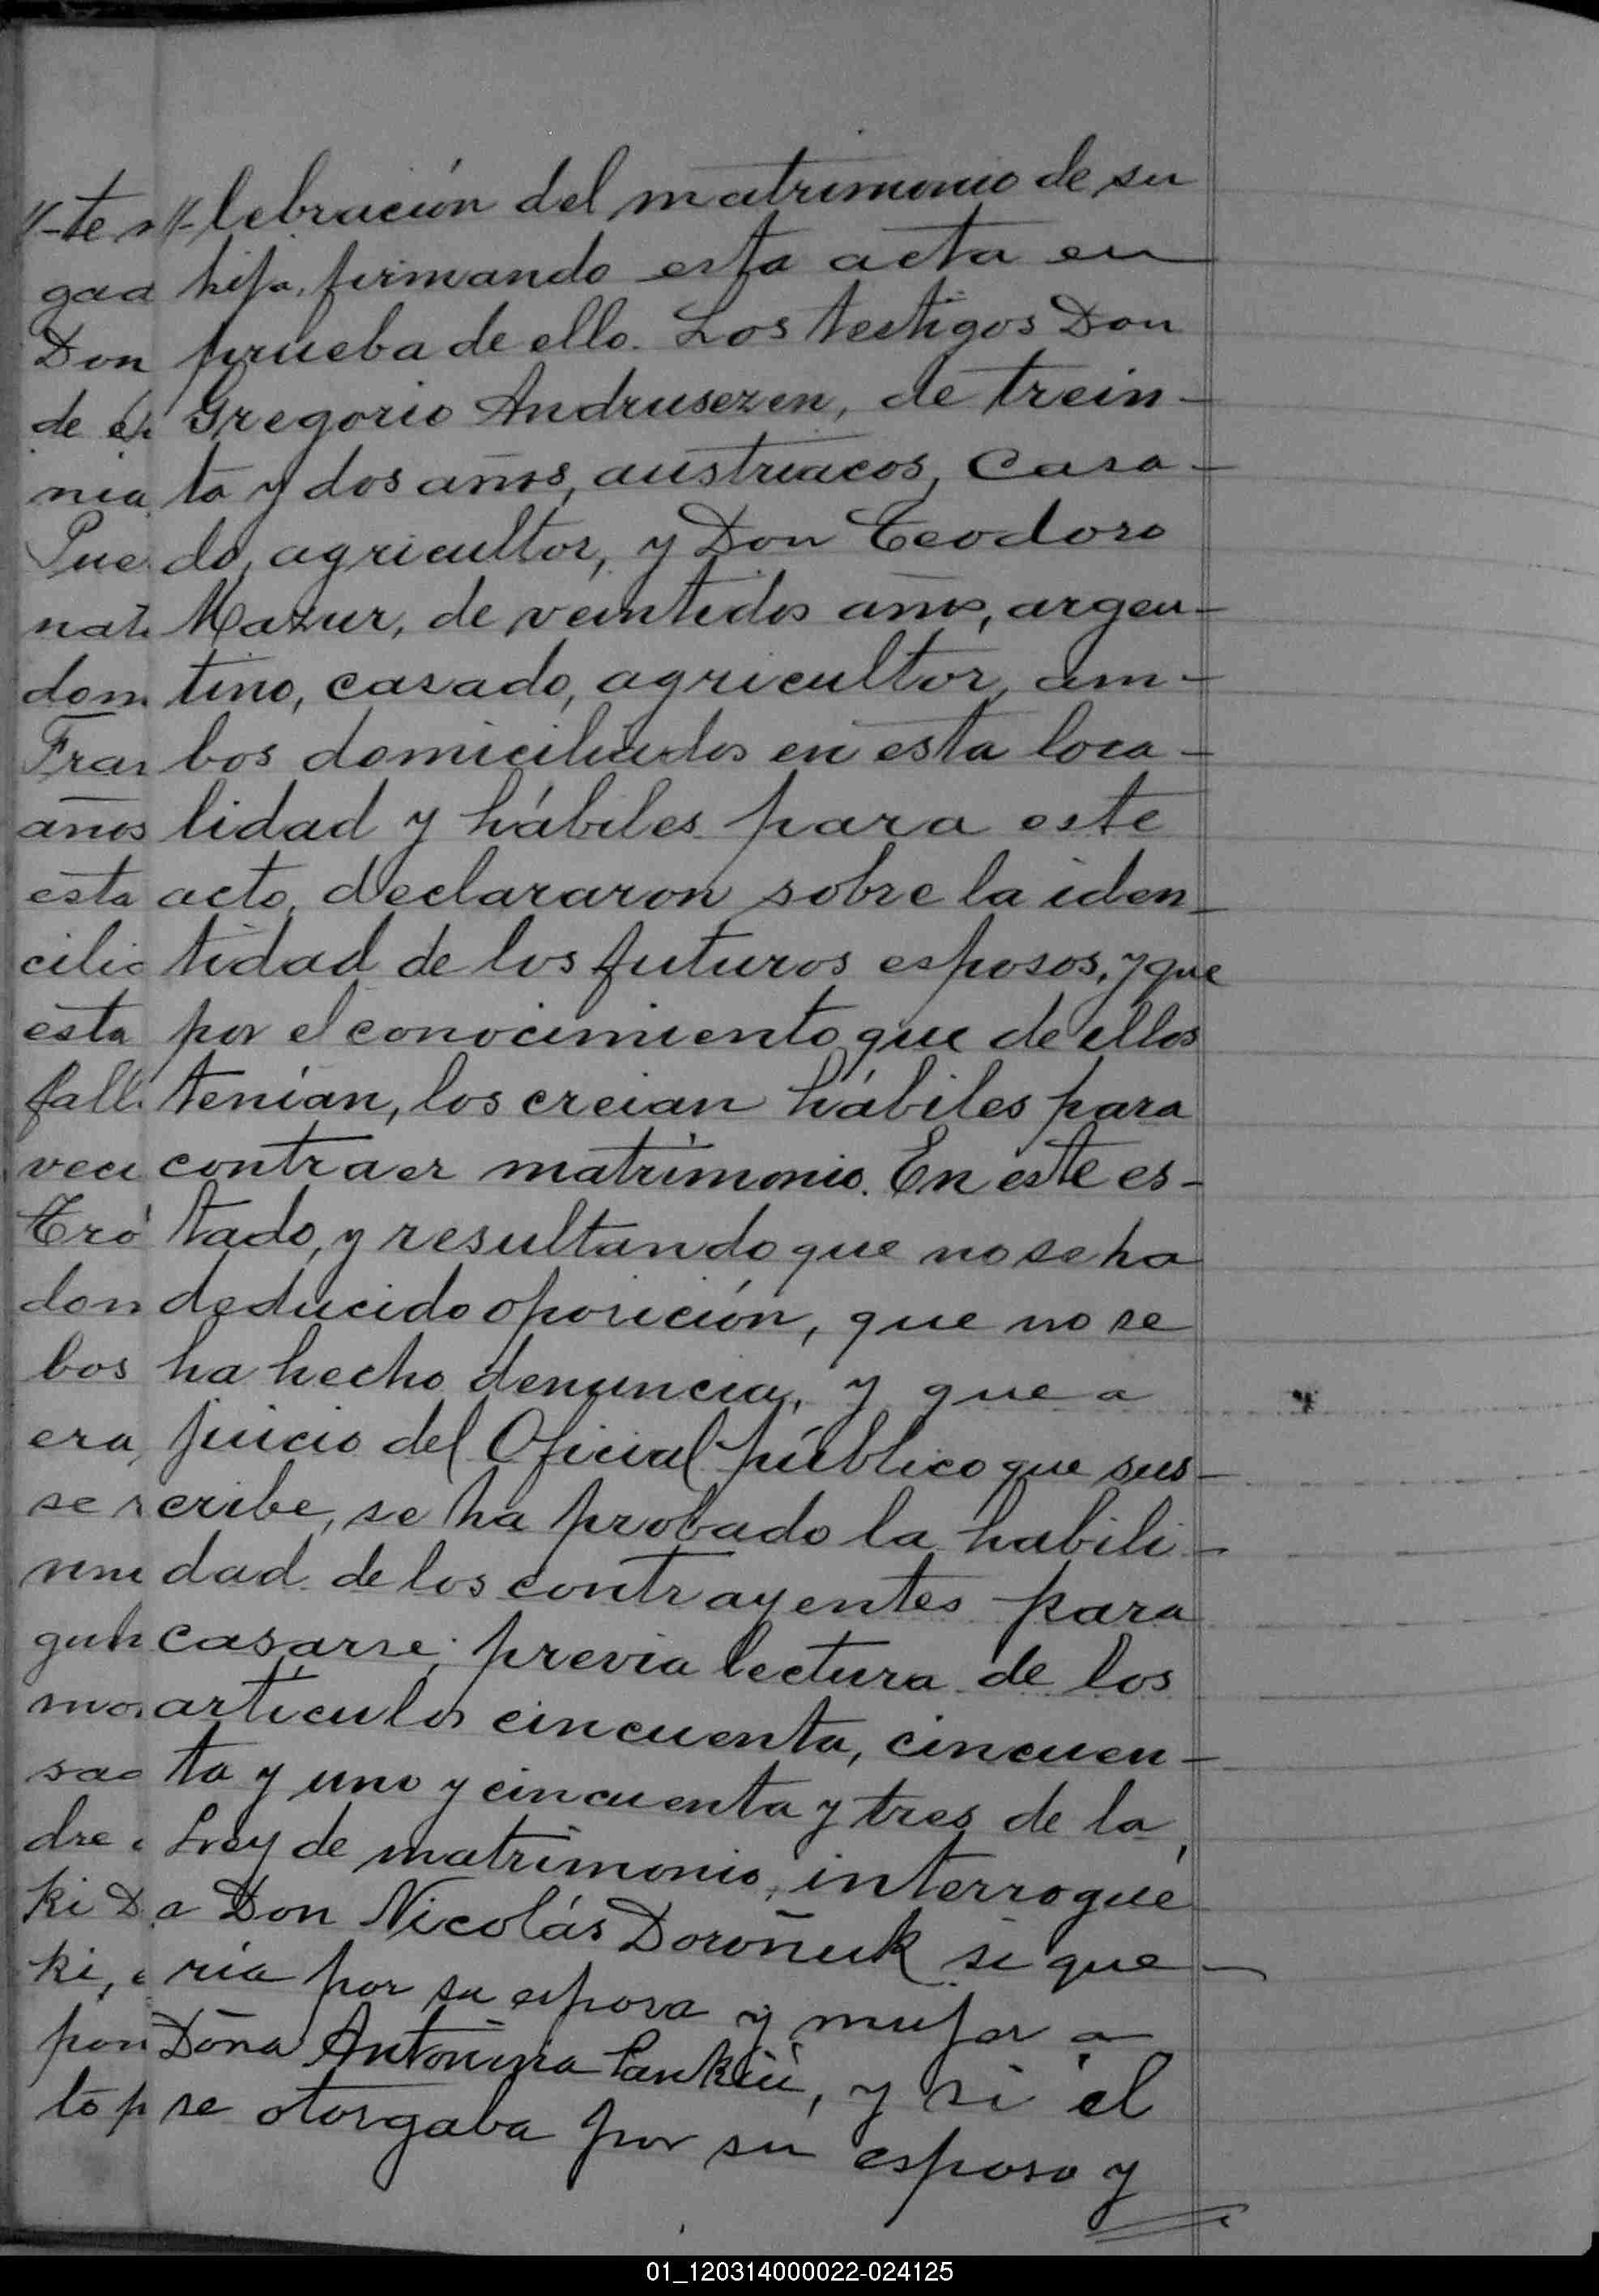 //-lebración del matrimonio de su
hija, firmando esta acta en
prueba de ello. Los testigos Don
Gregorio Andrusezen, de trein-
ta y dos años, austriacos, casa-
do, agricultor, y Don Teodoro
Mazur, de veintidos años, argen-
tino, casado, agricultor, am-
bos domiciliados en esta loca-
lidad y hábiles para este
acto, declararon sobre la iden-
tidad de los futuros esposos, y que
por el conocimiento que de ellos
tenían, los creian hábiles para
contraer matrimonio. En este es-
tado, y resultando que no se ha
deducido oposición, que no se
ha hecho denuncia, y que a
juicio del Oficial público que sus-
cribe, se ha probado la habili-
dad de los contrayentes para
casarse; previa lectura de los
artículos cincuenta, cincuen-
ta y uno y cincuenta y tres de la
Ley de matrimonio, interrogué
a Don Nicolás Doroñuk si que-
ría por su esposa y mujer a
Doña Antonina Pankiú, y si él
se otorgaba por su esposo y
//-te
gad
Don
de
nia
Pue
nat
dom
Fran
años
esta
cilia
esta
fall
veci
Tró
don
bos
era,
se
mu
gun
mo
sac
dre
ki D
ki,
pon
to p
01_120314000022-024125